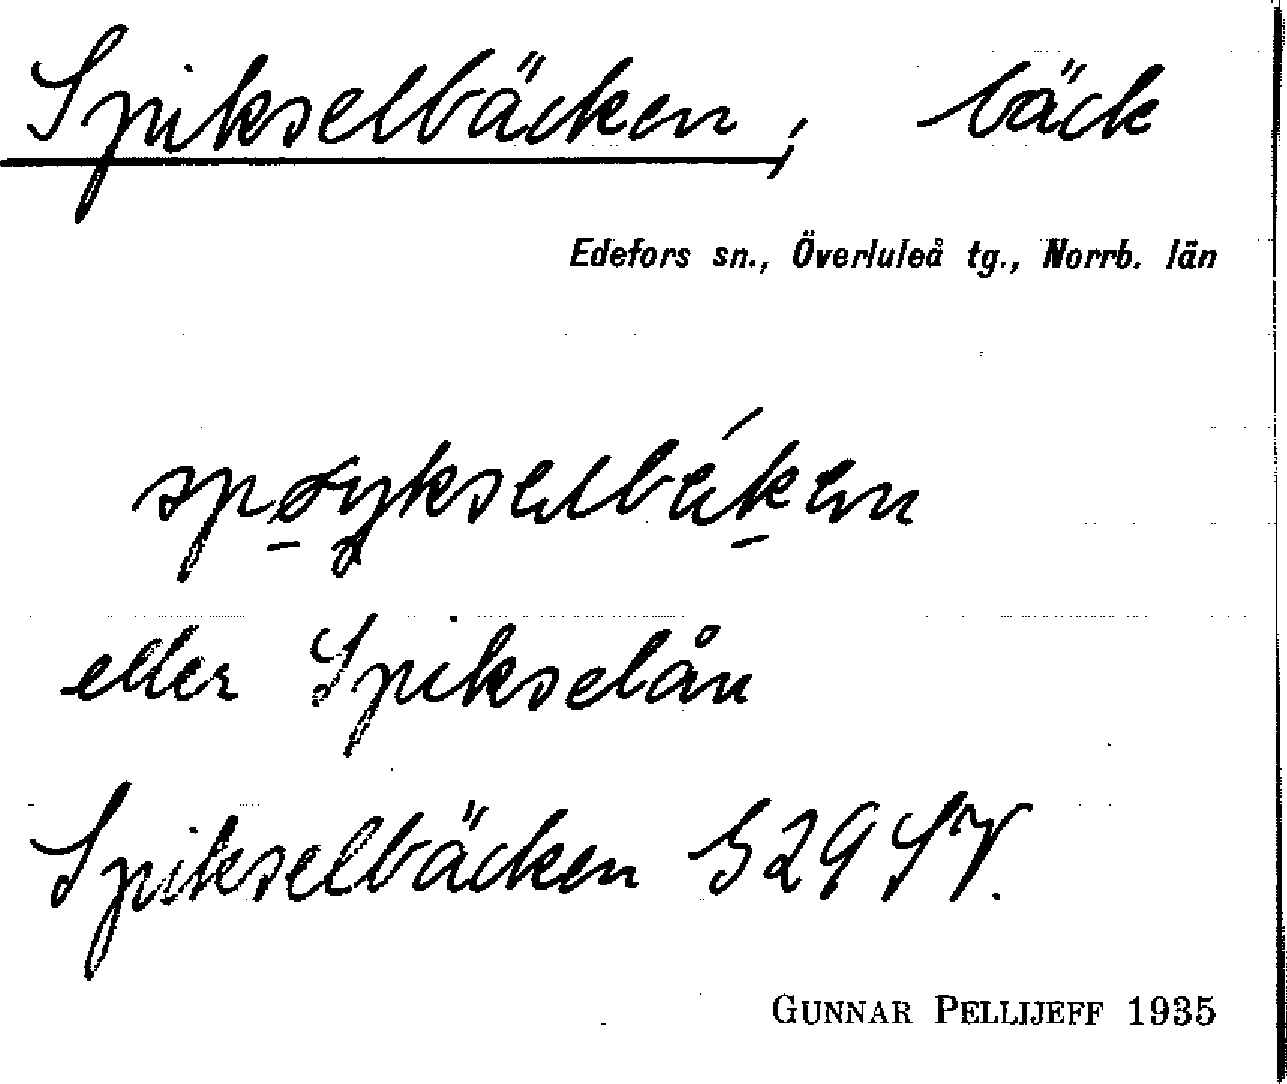 Spikselbäcken, bäck
Edefors sn., Överluleå tg., Norrb. län
eller Spikselån
Spikselbäcken
GUNNAR PELLIJEFF 1935